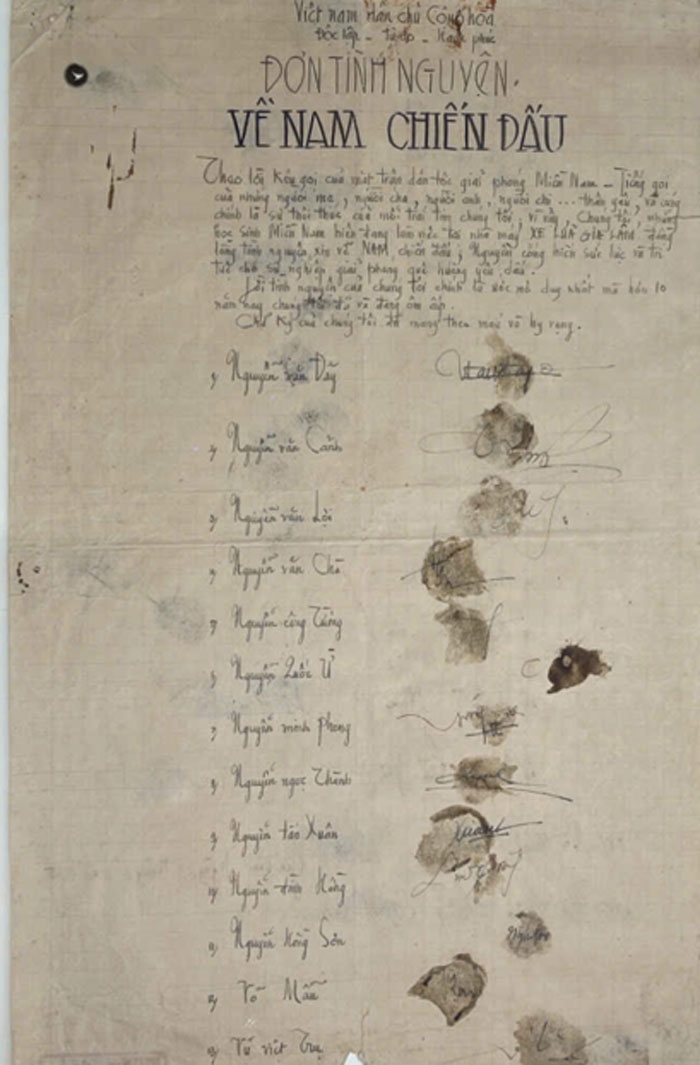 Việt nam dân chủ Cộng hòa
Độc lập - tự do - Hạnh phúc
ĐƠN TÌNH NGUYỆN.
VỀ NAM CHIẾN ĐẤU
Theo lời kêu gọi của mặt trận dân tộc giải phóng Miền Nam - Tiếng gọi
của những người mẹ, người cha, người anh, người chị ... thân yêu, và cũng
chính là sự thôi thúc của mỗi trái tim chúng tôi, vì vậy, Chúng tôi, những
học sinh Miền Nam hiện đang làm việc tại nhà máy XE LỬA GIA LÂM đồng
lòng tình nguyện xin về NAM chiến đấu; Nguyện cống hiến sức lực và trí
tuệ cho sự nghiệp giải phóng quê hương yêu dấu.
Lời tình nguyện của chúng tôi chính là ước mơ duy nhất mà hơn 10
năm nay chúng tôi đã và đang ôm ấp.
Chữ ký của chúng tôi đã mang theo máu và hy vọng.
1) Nguyễn văn Dãy
2) Nguyễn văn Cảnh
3) Nguyễn văn Lời
4) Nguyễn văn
5) Nguyễn công Tường
6) Nguyễn Quốc
7) Nguyễn minh Phong
8) Nguyễn ngọc Thành
9) Nguyễn tấo Xuân
Xuân
10) Nguyễn đình Hồng
11) Nguyễn Hồng Sơn
12) Võ Mẫu
13) Vũ viết Trụ